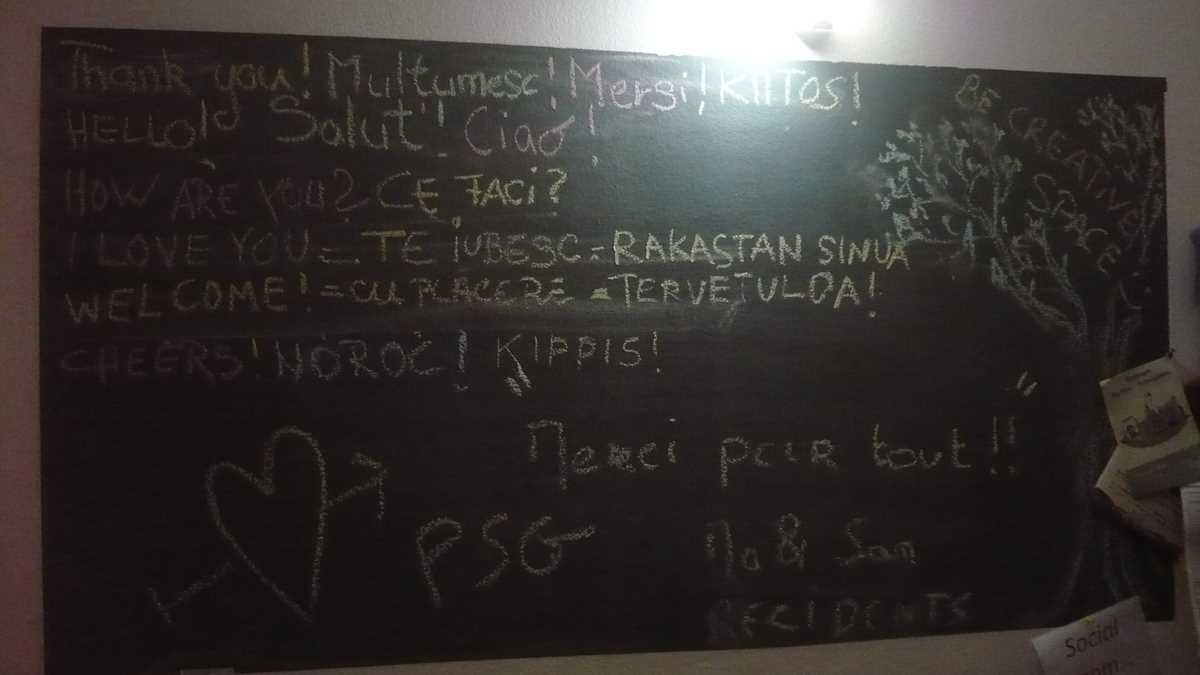 Thank you! Multumesc! Mersi! KIITOS!
HELLO! Salut! Ciao!
HOW ARE YOU? CE FACI?
I LOVE YOU = TE IUBESC = RAKASTAN SINUA
WELCOME! = CU PLACERE = TERVETULOA!
CHEERS! NOROC! KIPPIS!
BE
CREATIVE
SPACE
"Merci pour tout!!"
PSG
Mo & Sam
RECIDENTS
Social